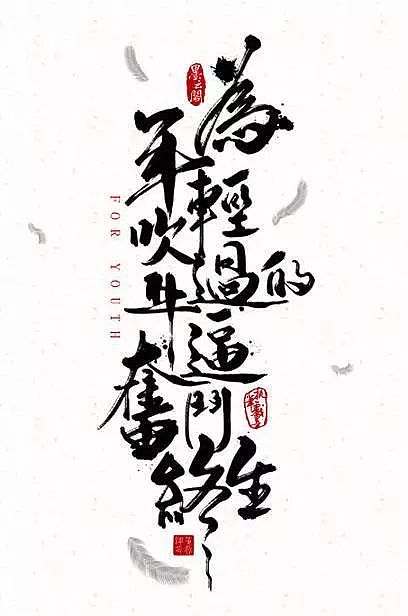 為
年輕
吹過的
牛逼
奮鬥
終生
FOR YOUTH
墨云閣